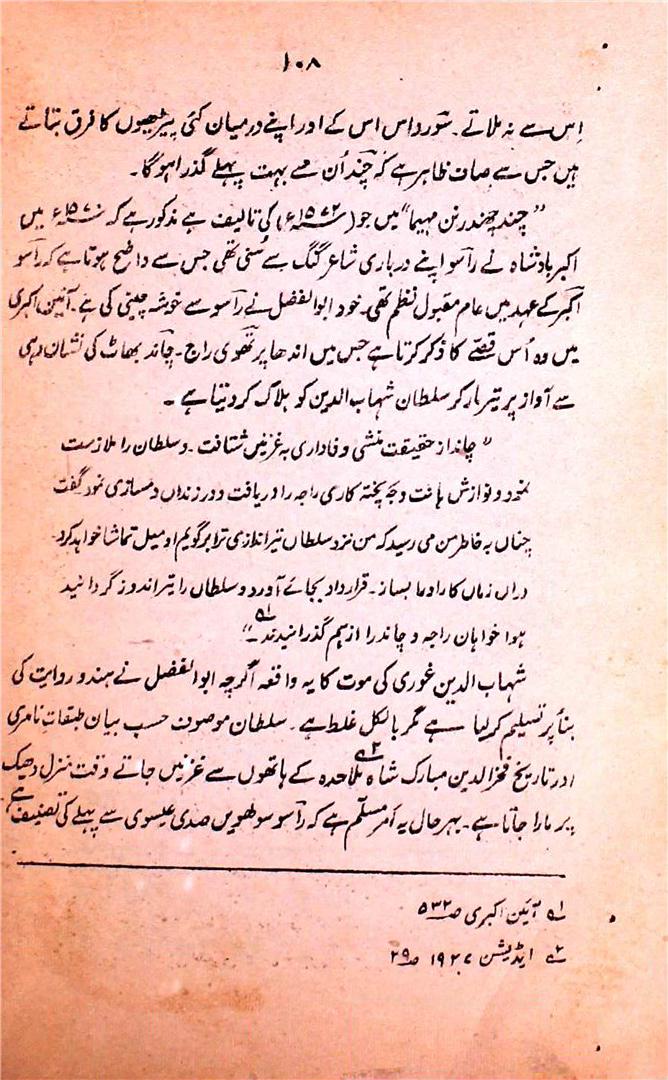 ۱۰۸
اِس سے نہ ملاتے۔ سورداس اس کے اور اپنے درمیان کئی پیڑھیوں کا فرق بتاتے
ہیں جس سے صاف ظاہر ہے کہ چند اُن سے بہت پہلے گذرا ہوگا۔
"چند چھند برنن مہیما" میں جو (۱۵۷۲ء) کی تالیف ہے مذکور ہے کہ ۱۵۷۰ء میں
اکبر بادشاہ نے راسو اپنے درباری شاعر گنگ سے سُنی تھی جس سے واضح ہوتا ہے کہ راسو
اکبر کے عہد میں عام مقبول نظم تھی۔ خود ابوالفضل نے راسو سے خوشہ چینی کی ہے۔ آئین اکبری
میں وہ اُس قصّے کا ذکر کرتا ہے جس میں اندھا پرتھوی راج۔ چاند بھاٹ کی نشان دہی
سے آواز پر تیر مار کر سلطان شہاب الدین کو ہلاک کر دیتا ہے۔
"چاند از حقیقت منشی و فاداری بہ غزنیں شتافت۔ و سلطان را ملازمت
نمود و نوازش یافت و چہ پختہ کاری راجہ را دریافت و در زنداں دمسازی نمود گفت
چناں بہ خاطر من می رسید کہ من نزد سلطاں تیر اندازی ترا بر گویم او میل تماشا خواہد کرد۔
دراں زماں کار او بساز۔ قرار داد بجائے آورد و سلطاں را تیر اندوز گردانید
ہوا خواہان راجہ و چاند را از ہم گذرانیدند۔" ۱؎
شہاب الدین غوری کی موت کا یہ واقعہ اگرچہ ابوالفضل نے ہندو روایت کی
بناء پر تسلیم کر لیا ہے مگر بالکل غلط ہے۔ سلطان موصوف حسب بیان طبقات ناصری
اور تاریخ فخرالدین مبارک شاہ ۲؎ ملاحدہ کے ہاتھوں سے غزنیں جاتے وقت منزل دھیک
پر مارا جاتا ہے۔ بہر حال یہ اَمر مسلّم ہے کہ راسو سولھویں صدی عیسوی سے پہلے کی تصنیف ہے
۱؎ آئین اکبری صـ ۵۳۲
۲؎ ایڈیشن ۱۹۲۷ صـ ۲۹